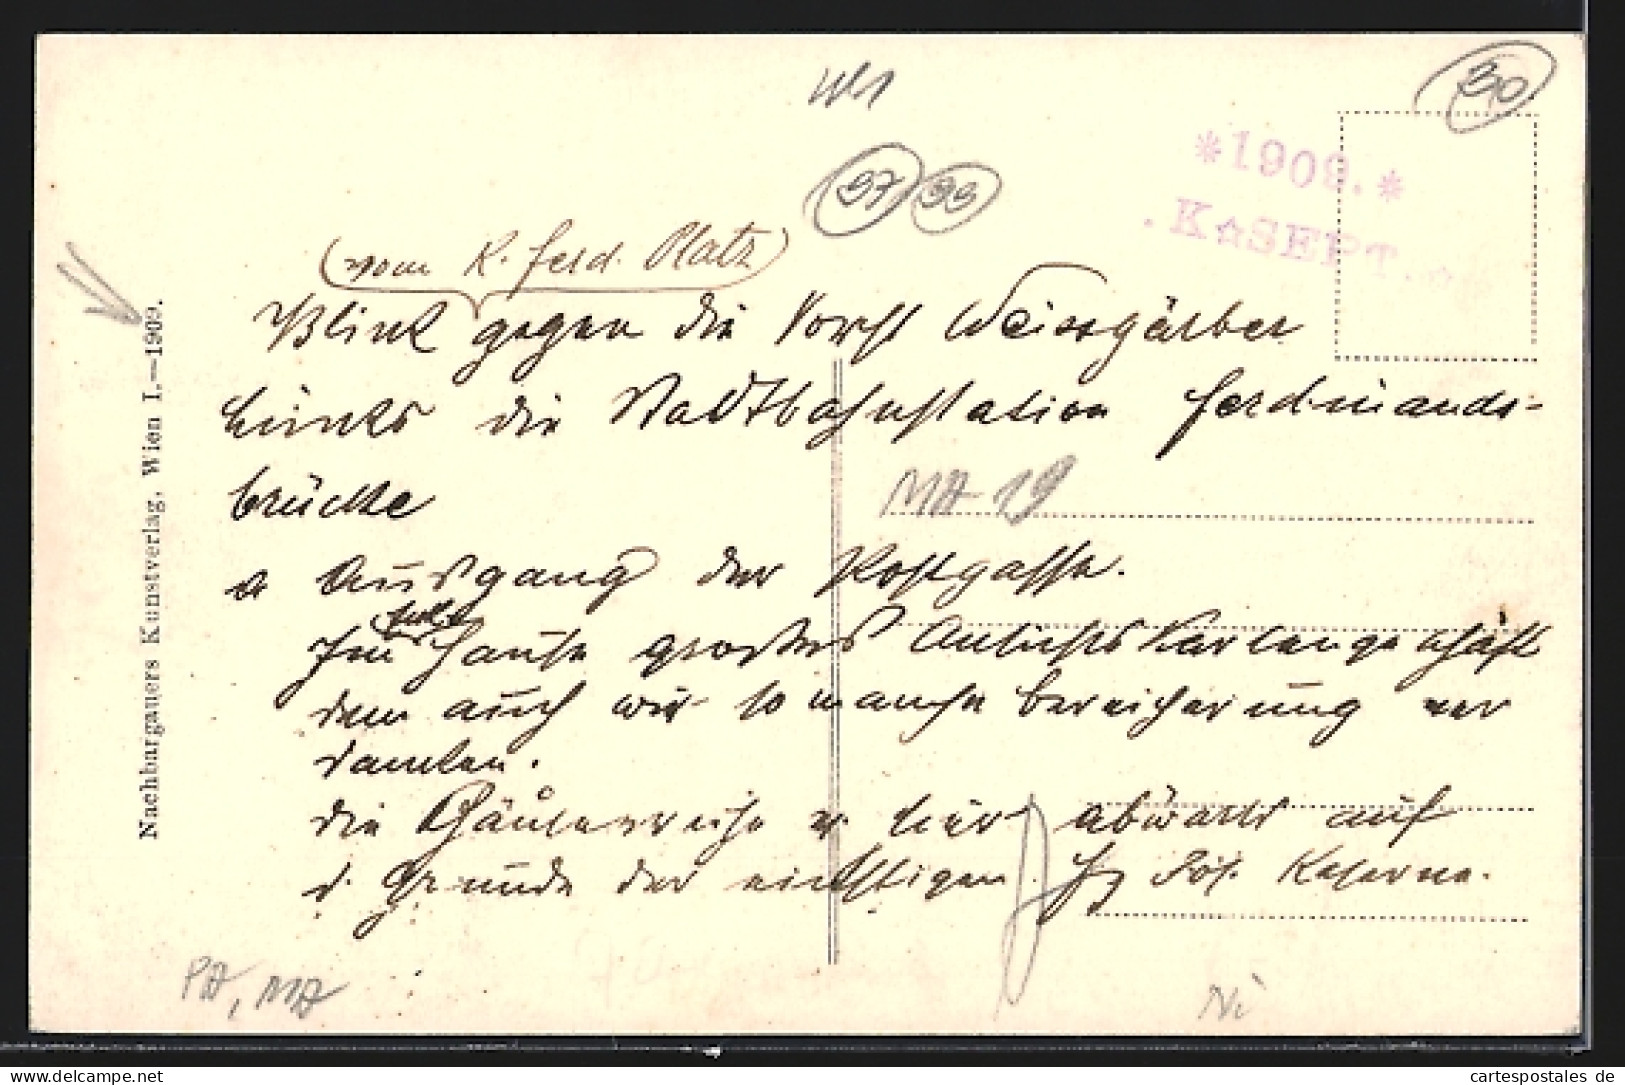 30
*1909.*
.K☆SEPT.☆
97 93
(vom K. Ferd. Platz)
Blick gegen die Vorst Weissgärber
Links die Stadtbahnstation Ferdinands-
brücke
a Ausgang der Postgasse.
Im Hause grosses Ansichtskartengeschäft
dem auch wir so manche Bereicherung ver
danken.
die Häuserreihe hier abwärts auf
d. Grunde der einstigen Fz Jos. Kaserne.
MA 19
PA, MA
Ni
Nachburgauers Kunstverlag, Wien I.—1909.
cartespostales de